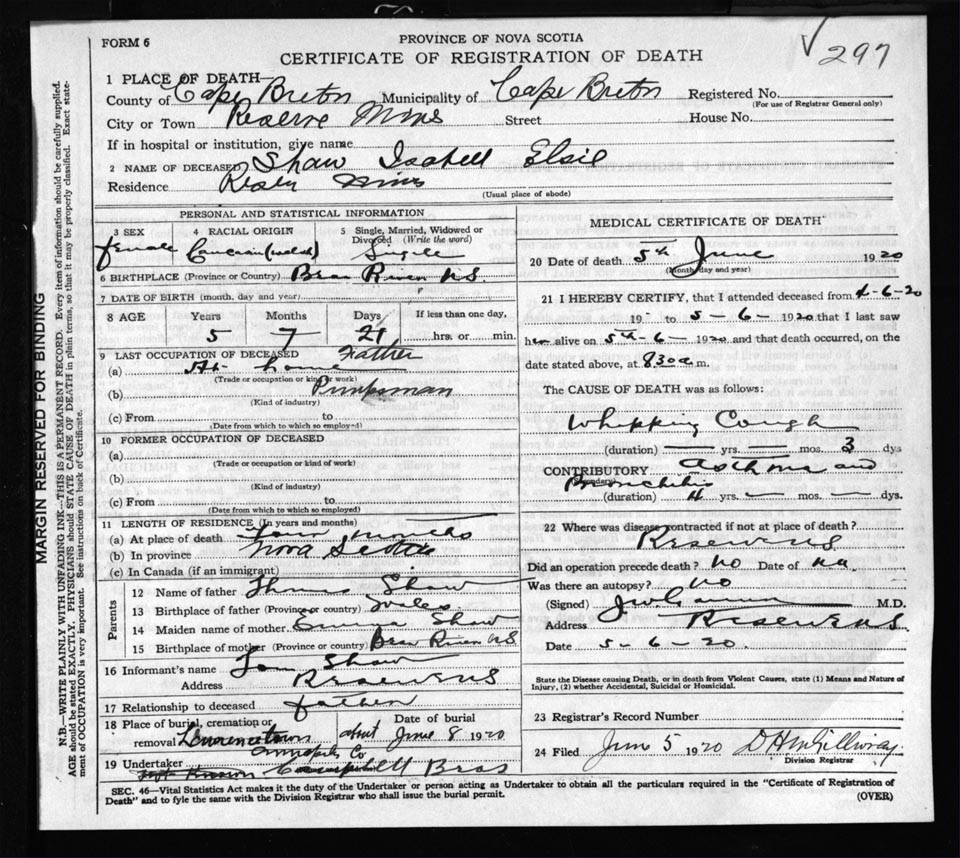 FORM 6
PROVINCE OF NOVA SCOTIA
CERTIFICATE OF REGISTRATION OF DEATH
297
1 PLACE OF DEATH—
County of Cape Breton Municipality of Cape Breton Registered No.
(For use of Registrar General only)
City or Town Reserve Mines Street House No.
If in hospital or institution, give name
2 NAME OF DECEASED Shaw Isabell Elsie
Residence Mines
(Usual place of abode)
PERSONAL AND STATISTICAL INFORMATION
3 SEX 4 RACIAL ORIGIN 5 Single, Married, Widowed or Divorced (Write the word)
female Single
6 BIRTHPLACE (Province or Country) Bear River NS
7 DATE OF BIRTH (month, day and year)
8 AGE Years Months Days If less than one day,
5 7 21 hrs. or min.
9 LAST OCCUPATION OF DECEASED Father
(a) At home
(Trade or occupation or kind of work)
(b) Pumpman
(Kind of industry)
(c) From to
(Date from which to which so employed)
10 FORMER OCCUPATION OF DECEASED
(a)
(Trade or occupation or kind of work)
(b)
(Kind of industry)
(c) From to
(Date from which to which so employed)
11 LENGTH OF RESIDENCE (In years and months)
(a) At place of death Four months
(b) In province Nova Scotia
(c) In Canada (if an immigrant)
Parents
12 Name of father Thomas Shaw
13 Birthplace of father (Province or country) Wales
14 Maiden name of mother Emma Shaw
15 Birthplace of mother (Province or country) Bear River NS
16 Informant's name Tom Shaw
Address
17 Relationship to deceased father
18 Place of burial, cremation or removal Date of burial
Lawrencetown about June 8 1920
Annapolis Co
19 Undertaker Campbell Bros
MEDICAL CERTIFICATE OF DEATH
20 Date of death 5th June 1920
(Month, day and year)
21 I HEREBY CERTIFY, that I attended deceased from 4-6-20
19 to 5-6-1920 that I last saw
h alive on 5th-6-1920 and that death occurred, on the
date stated above, at 8.30 a.m.
The CAUSE OF DEATH was as follows:
Whooping Cough
(duration) — yrs. — mos. 3 dys
CONTRIBUTORY Asthma and
(Secondary) Bronchitis
(duration) 4 yrs. — mos. — dys.
22 Where was disease contracted if not at place of death?
Did an operation precede death? no Date of na
Was there an autopsy? no
(Signed) M.D.
Address
Date 5-6-20
State the Disease causing Death, or in death from Violent Causes, state (1) Means and Nature of
Injury, (2) whether Accidental, Suicidal or Homicidal.
23 Registrar's Record Number
24 Filed June 5 1920
Division Registrar
SEC. 46—Vital Statistics Act makes it the duty of the Undertaker or person acting as Undertaker to obtain all the particulars required in the "Certificate of Registration of
Death" and to fyle the same with the Division Registrar who shall issue the burial permit.
(OVER)
MARGIN RESERVED FOR BINDING
N.B.—WRITE PLAINLY WITH UNFADING INK—THIS IS A PERMANENT RECORD. Every item of information should be carefully supplied.
AGE should be stated EXACTLY. PHYSICIANS should STATE CAUSE OF DEATH in plain terms, so that it may be properly classified. Exact state-
ment of OCCUPATION is very important. See instructions on back of Certificate.